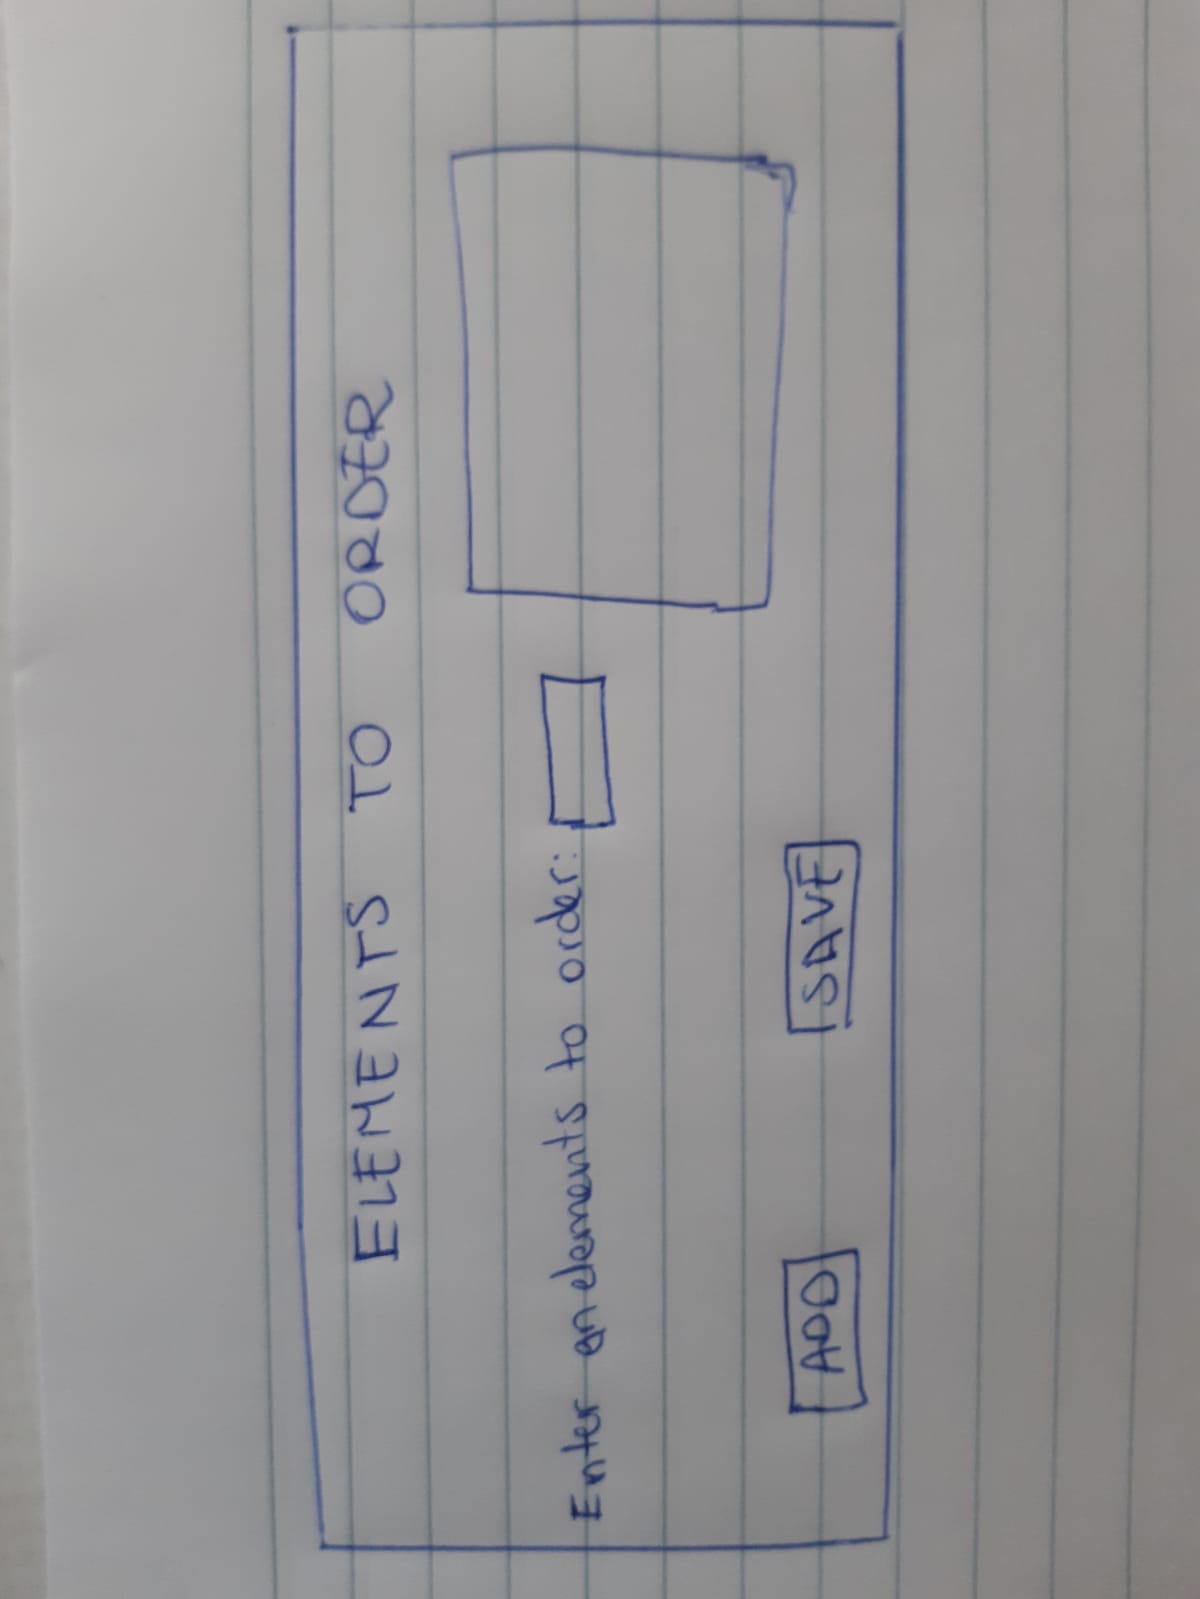 ELEMENTS TO ORDER
Enter an elements to order:
ADD SAVE